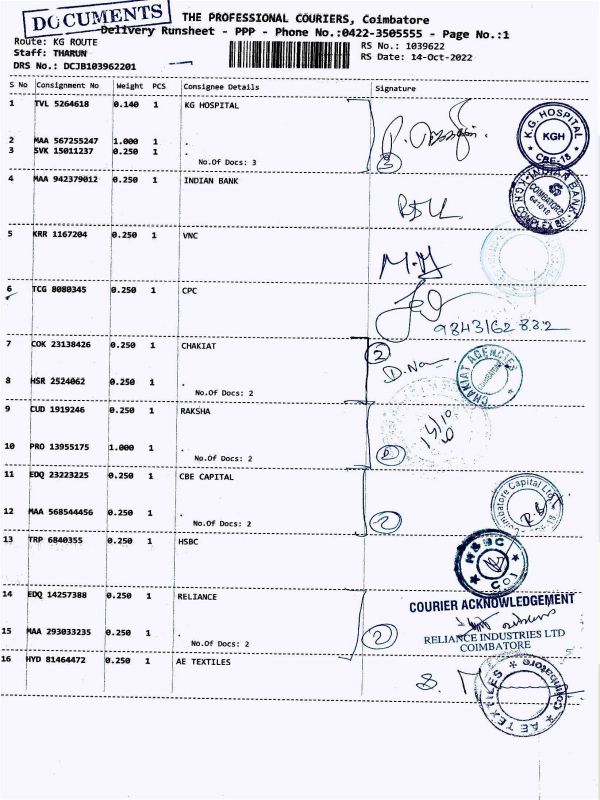 DOCUMENTS
THE PROFESSIONAL COURIERS, Coimbatore
Delivery Runsheet - PPP - Phone No.:0422-3505555 - Page No.:1
Route: KG ROUTE
RS No.: 1039622
Staff: THARUN
RS Date: 14-Oct-2022
DRS No.: DCJB103962201
S No Consignment No Weight PCS Consignee Details Signature
1 TVL 5264618 0.140 1 KG HOSPITAL
K.G. HOSPITAL
KGH
CBE-18
2 MAA 567255247 1.000 1 .
3 SVK 15011237 0.250 1 .
No.Of Docs: 3
3
4 MAA 942379012 0.250 1 INDIAN BANK
INDIAN BANK
COIMBATORE
641018
KGH COMPLEX BR.
5 KRR 1167204 0.250 1 VNC
6 TCG 8080345 0.250 1 CPC
9843162832
7 COK 23138426 0.250 1 CHAKIAT
2
CHAKIAT AGENCIES
COIMBATORE
8 HSR 2524062 0.250 1 .
No.Of Docs: 2
9 CUD 1919246 0.250 1 RAKSHA
14/10
10 PRO 13955175 1.000 1 .
No.Of Docs: 2
11 EDQ 23223225 0.250 1 CBE CAPITAL
Coimbatore Capital Ltd
12 MAA 568544456 0.250 1 .
No.Of Docs: 2
2
13 TRP 6840355 0.250 1 HSBC
HSBC
COI
14 EDQ 14257388 0.250 1 RELIANCE
COURIER ACKNOWLEDGEMENT
15 MAA 293033235 0.250 1 .
No.Of Docs: 2
2
RELIANCE INDUSTRIES LTD
COIMBATORE
16 HYD 81464472 0.250 1 AE TEXTILES
AE TEXTILES
Coimbatore